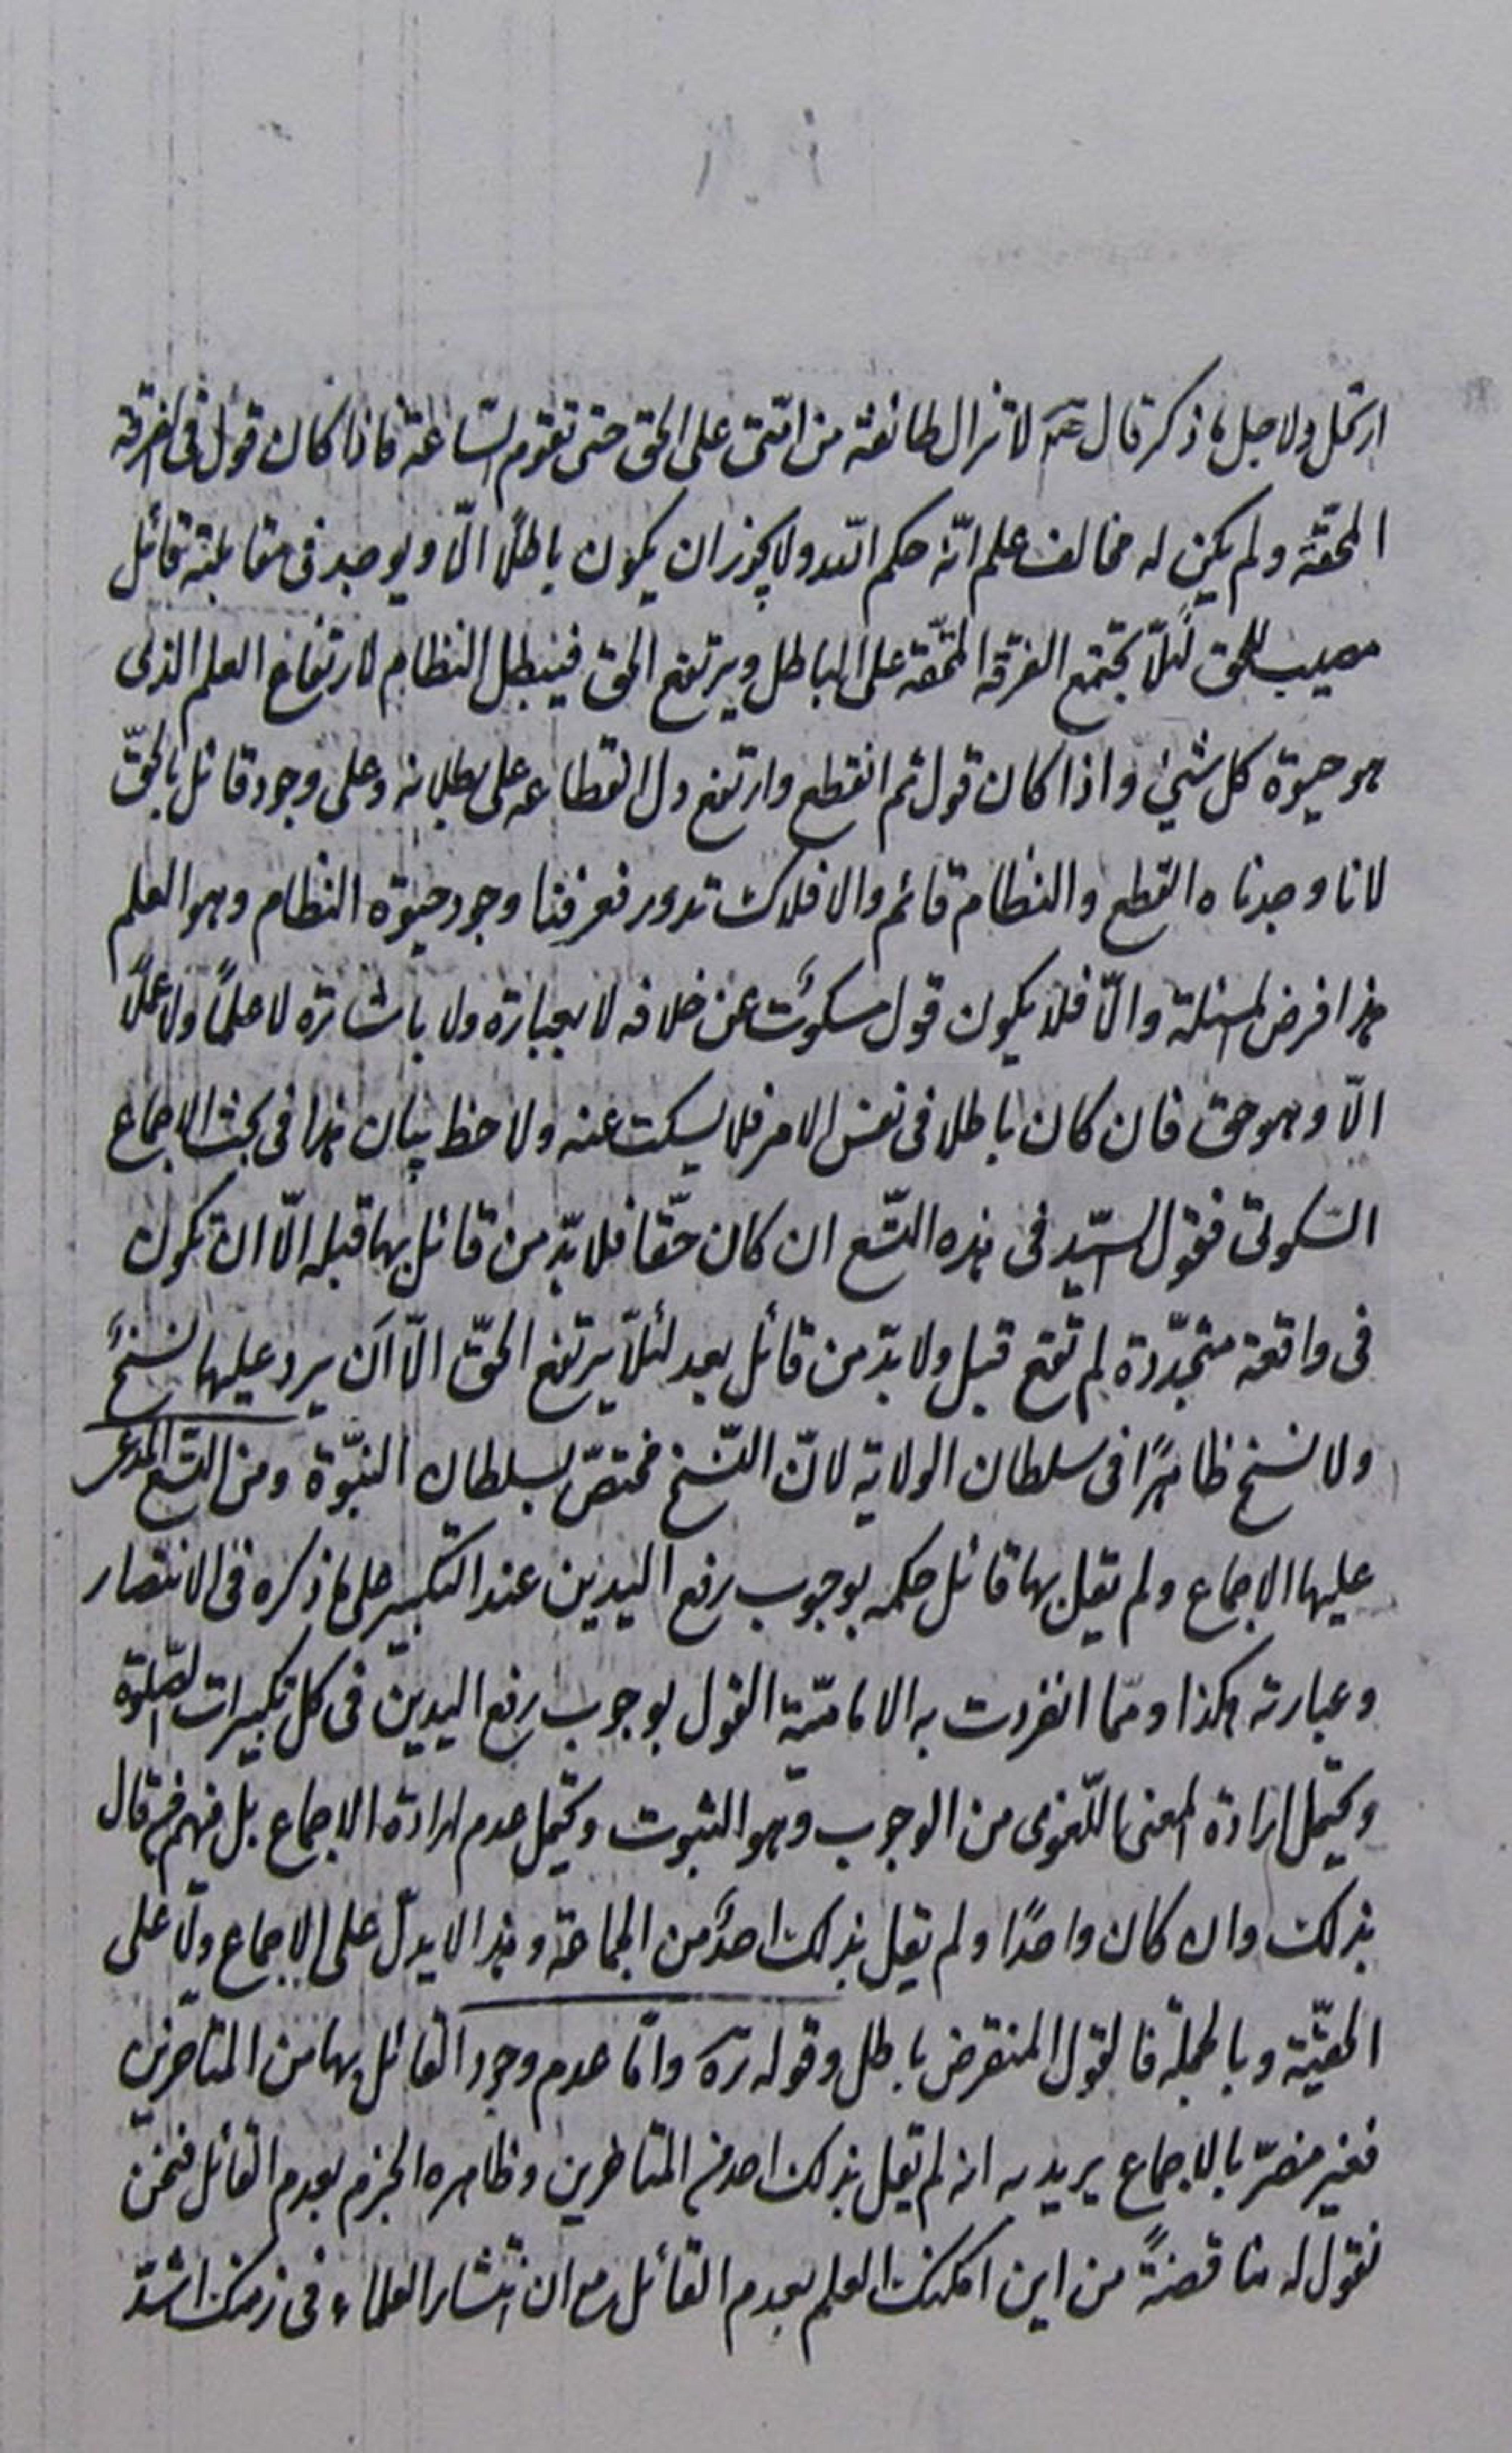 ارتحل ولاجل ما ذكر قال ص لا تزال طائفة من امّتى على الحق حتى تقوم السّاعة فاذا كان قول فى الفرقة
المحقّة ولم يكن له مخالف علم انّه حكم اللّه ولا يجوز ان يكون باطلًا الّا ويوجد فى مقابلته قائل
مصيب للحق لئلّا تجتمع الفرقة المحقّة على الباطل ويرتفع الحق فيبطل النظام لارتفاع العلم الذى
هو حيوة كل شىء واذا كان قول ثم انقطع وارتفع دل انقطاعه على بطلانه وعلى وجود قائل بالحقّ
لانا وجدناه انقطع والنظام قائم والافلاك تدور فعرفنا وجود حيوة النظام وهو العلم
هذا فرض المسئلة والّا فلا يكون قول مسكوت عن خلافه لا بعبارة ولا باشارة لا علمًا ولا عملًا
الّا وهو حق فان كان باطلا فى نفس الامر فلا يسكت عنه ولاحظ بيان هذا فى بحث الاجماع
السّكوتى فقول السيّد فى هذه التسع ان كان حقّا فلا بدّ من قائل بها قبله الّا ان تكون
فى واقعة متجدّدة لم تقع قبل ولا بدّ من قائل بعد لئلّا يرتفع الحقّ الّا ان يرد عليها نسخ
ولا نسخ ظاهرًا فى سلطان الولاية لانّ النّسخ مختصّ بسلطان النبّوة ومن التسع المدعى
عليها الاجماع ولم يقل بها قائل حكمه بوجوب رفع اليدين عند التكبير على ما ذكره فى الانتصار
وعبارته هكذا وممّا انفردت به الاماميّة القول بوجوب رفع اليدين فى كل تكبيرات الصّلوة
ويحتمل ارادة المعنى اللّغوى من الوجوب وهو الثبوت ويحتمل عدم ارادة الاجماع بل فيهم من قال
بذلك وان كان واحدًا ولم يقل بذلك احد من الجماعة وهذا لا يدلّ على الاجماع ولا على
الحقيّة وبالجملة فالقول المنقرض باطل وقوله ره وامّا عدم وجود القائل بها من المتاخرين
فغير مضرّ بالاجماع يريد به انه لم يقل بذلك احد من المتاخرين وظاهره الجزم بعدم القائل فنحن
نقول له مناقضةً من اين امكنك العلم بعدم القائل مع ان انتشار العلماء فى زمنك اشدّ